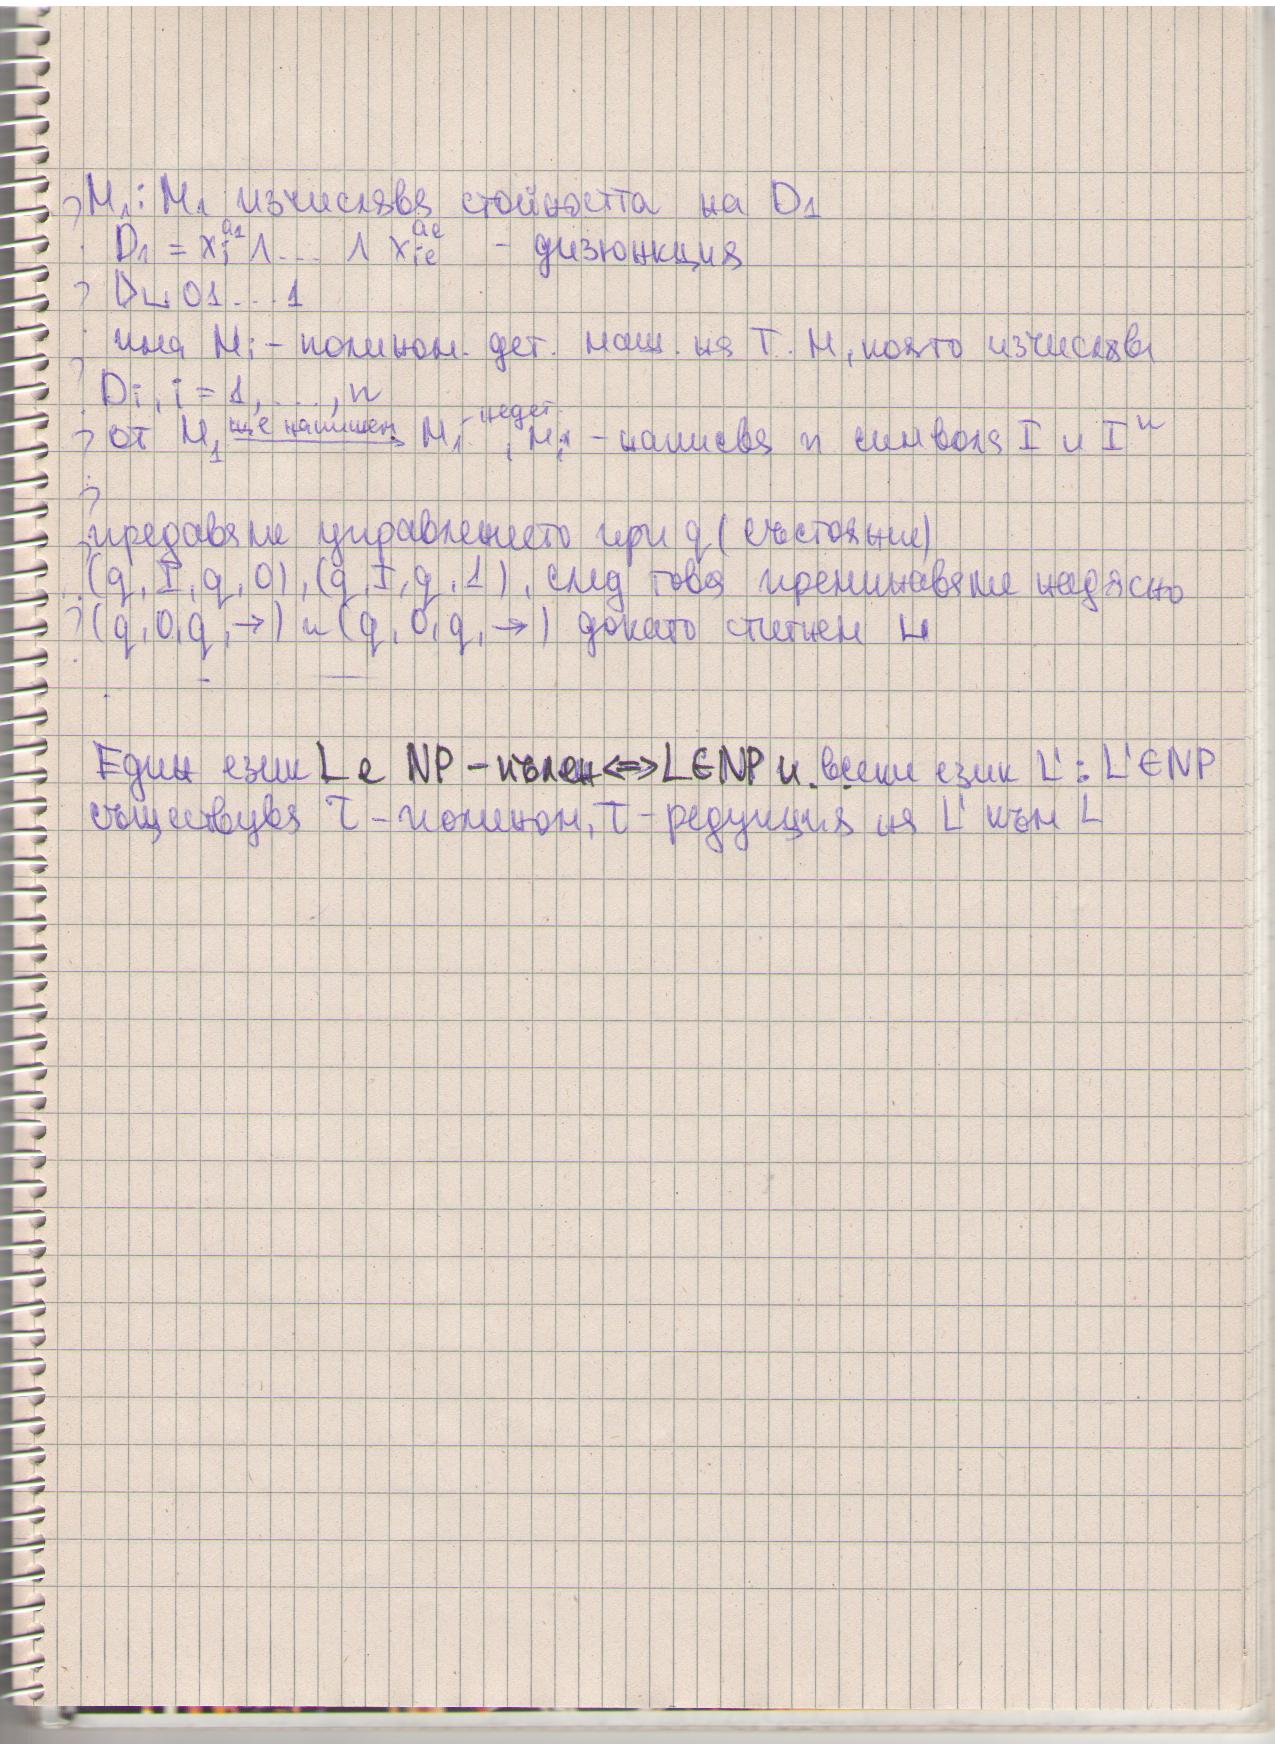 M₁: M₁ изчислява стойността на D₁
D₁ = x_i^a1 ∧ ... ∧ x_ie^ae - дизюнкция
D⊔01...1
има Mi - полином. дет. маш. на Т. М, която изчислява
Di, i = 1, ..., n
от M₁ ще напишем → M₁ недет., - написва n символа I и I^n
предаваме управлението при q (състояние)
(q, I, q, 0), (q, I, q, 1), след това преминаваме надясно
(q, 0, q, →) и (q, 0, q, →) докато стигнем ⊔
Един език L е NP-пълен <=> L∈NP и всеки език L': L'∈NP
съществува τ - полином, τ - редукция на L' към L